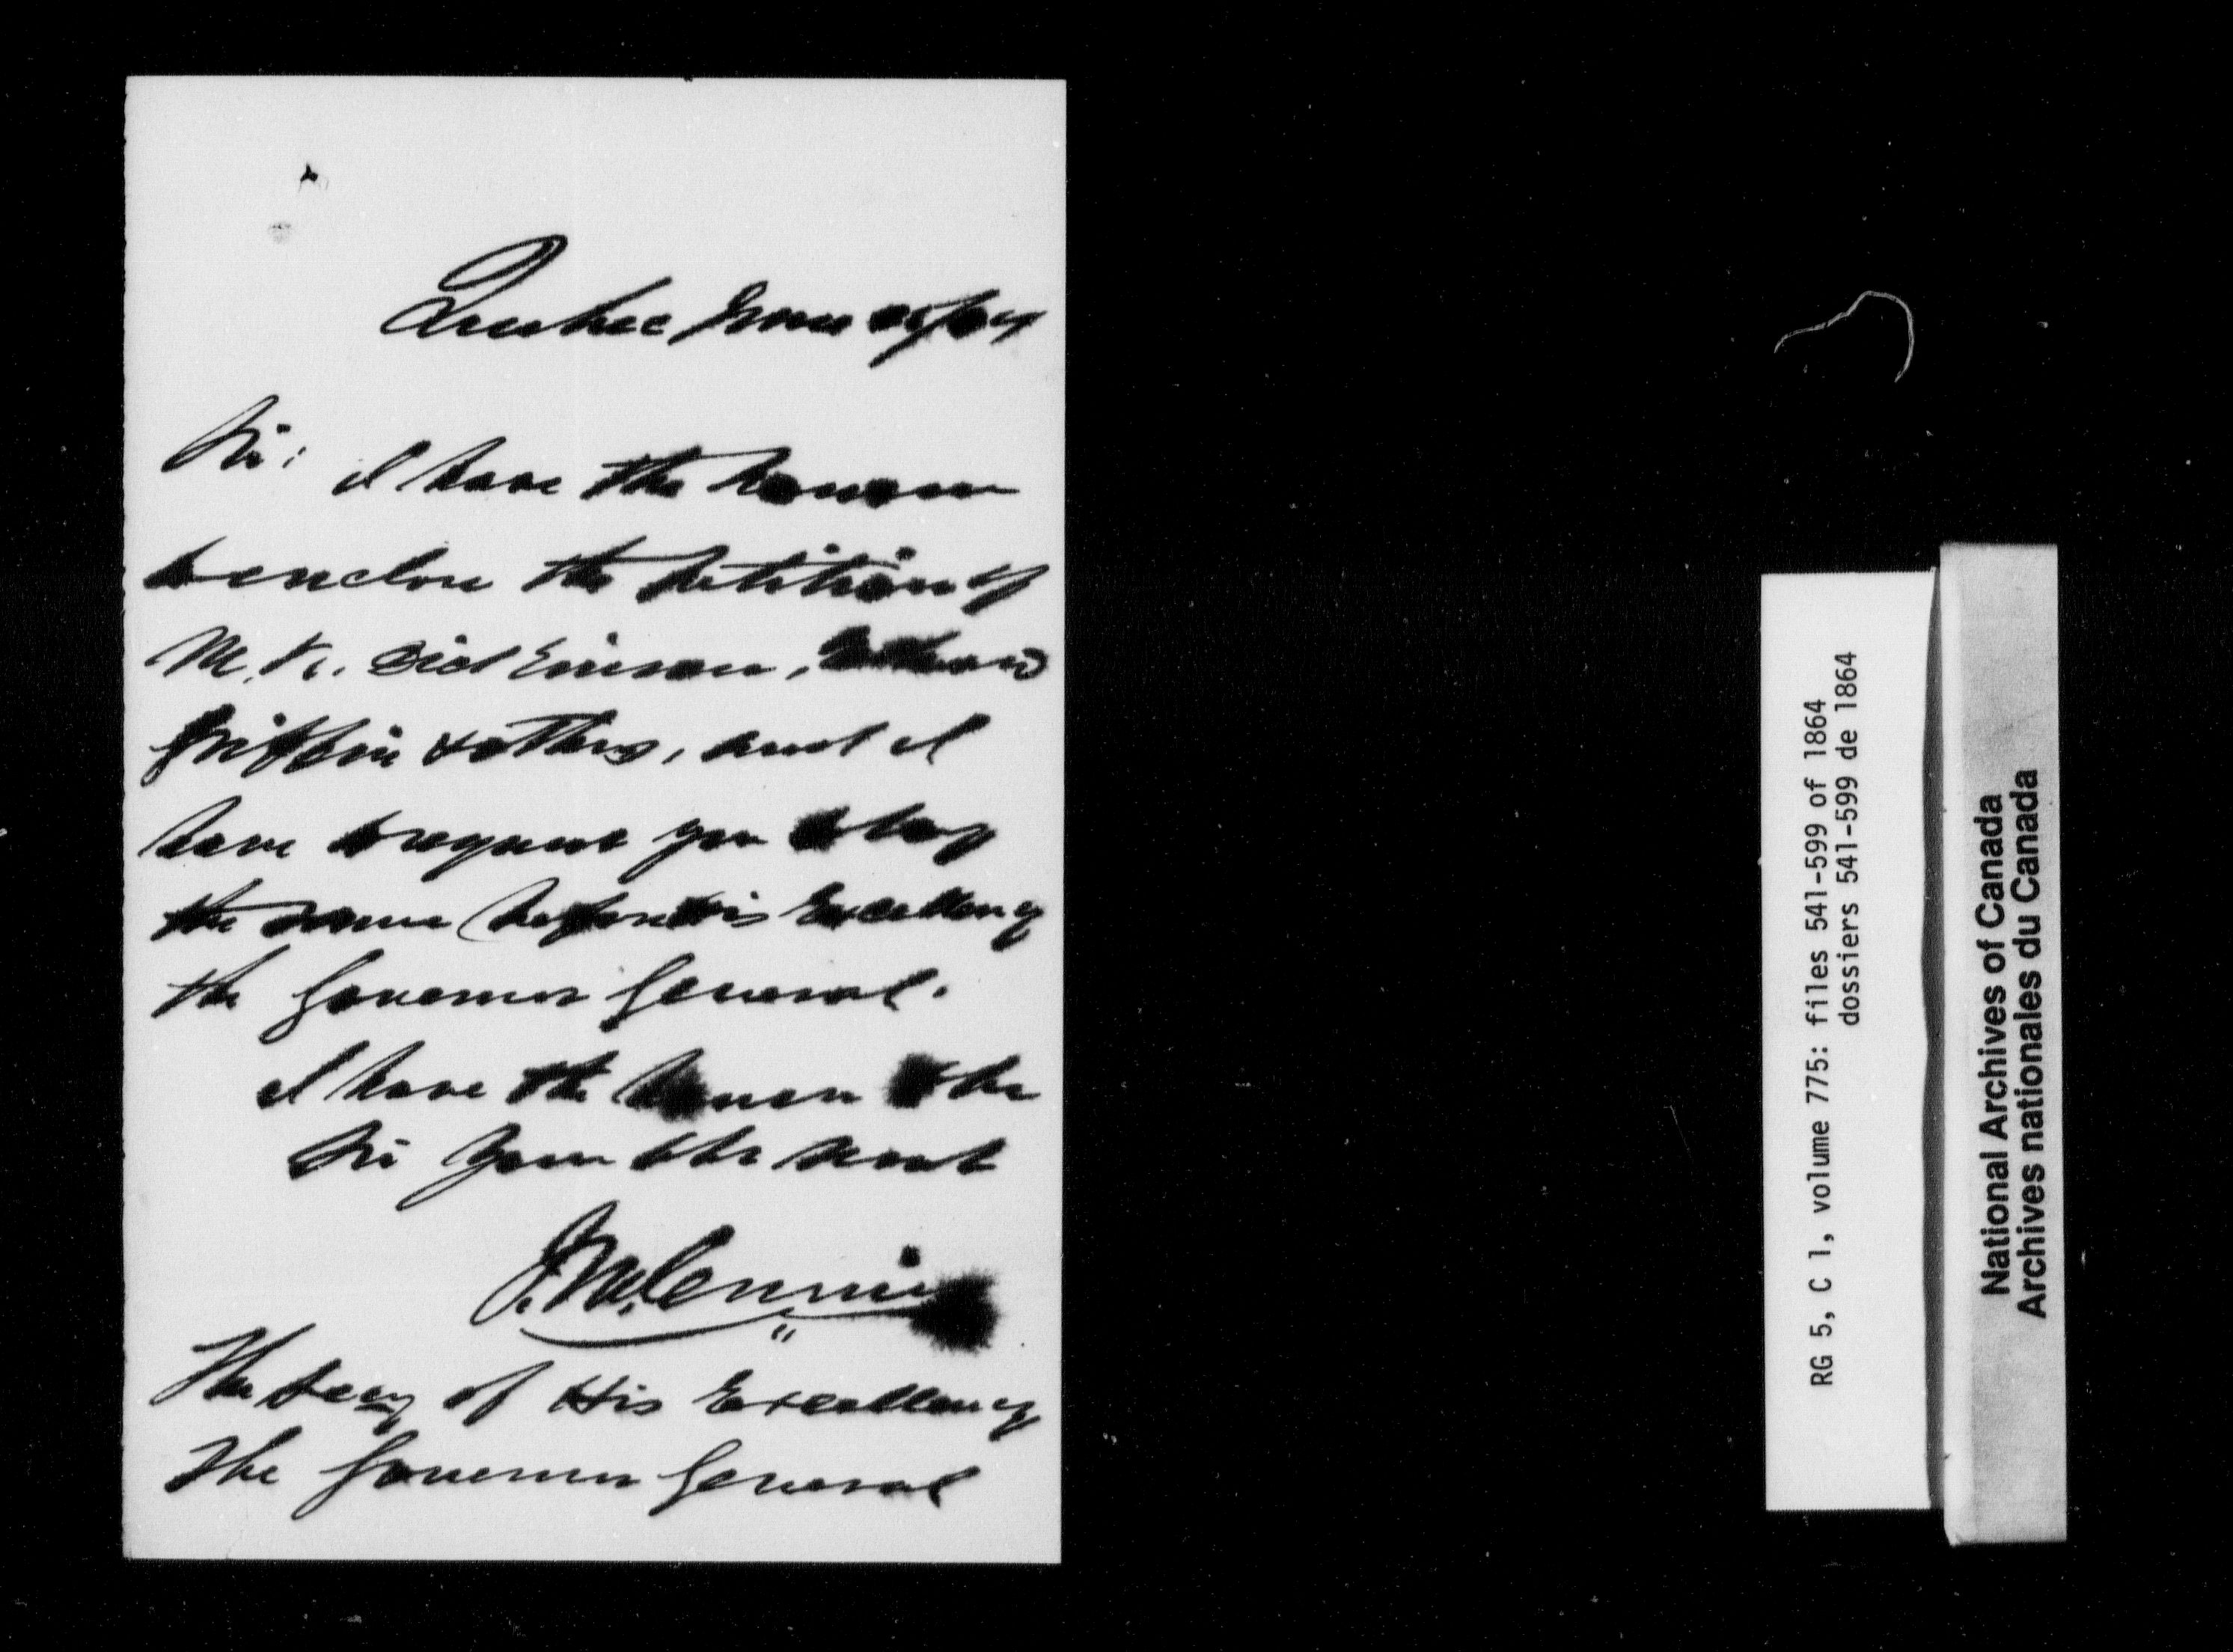 Quebec June /64
Sir:
I have the honour
to enclose the petition of
M. K. Dickinson,
Griffin & others, and I
have to request you to lay
the same before His Excellency
the Governor General.
I have the honour to be
Sir Your Obt servt
J. M. Currier
The Secy of His Excellency
The Governor General
RG 5, C 1, volume 775: files 541-599 of 1864
dossiers 541-599 de 1864
National Archives of Canada
Archives nationales du Canada